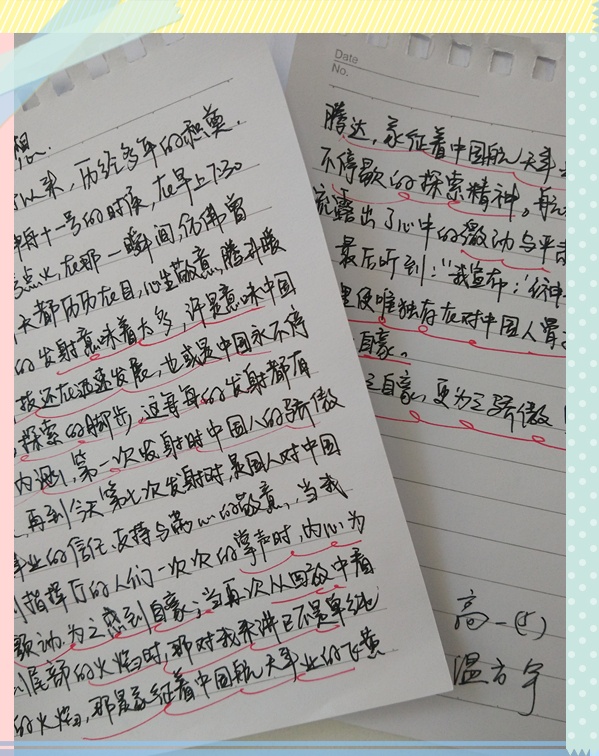 想.
以来，历经多年的积奠.
舟十一号的时候，在早上7:30
点火，在那一瞬间，仿佛曾
天都历历在目，心生敬意，腾升感
的发射意味着太多，许是意味中国
技还在迅速发展，也或是中国永不停
探索的脚步，这每每的发射都有
内涵，第一次发射时中国人的骄傲
，再到今天第七次发射时，是国人对中国
事业的信任、支持与满心的敬意，当我
指挥厅的人们一次次的掌声时，内心为
颤动.为之感到自豪；当再次从回放中看
尾部的火焰时，那对我来讲已不是单纯
的火焰，那是象征着中国航天事业的飞黄
Date
No.
腾达，象征着中国航天事
不停歇的探索精神。航
流露出了心中的激动与
最后听到："我宣布：
便唯独存在对中国人
自豪。
之自豪，更为之骄傲
高一(5)
温方宇